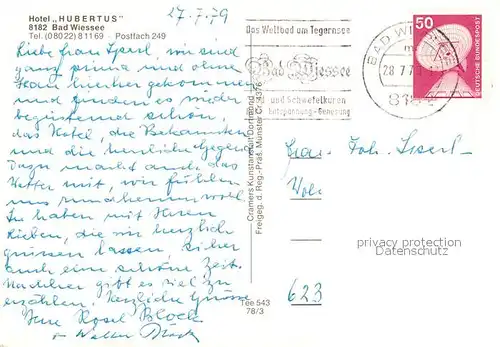 Hotel „HUBERTUS"
8182 Bad Wiessee
Tel. (08022) 81169 · Postfach 249
27.7.79
Liebe Frau Isserl, wir sind
ganz prima und ohne
Stau hierher gekommen
und finden es wieder
begeisternd schön,
das Hotel, die Bekannten
und die herrliche Gegend.
Dazu macht auch das
Wetter mit, wir fühlen
uns rundherum wohl.
Sie haben mit Ihren
Lieben, die wir herzlich
grüssen lassen, sicher
auch eine schöne Zeit.
Nachher gibt es viel zu
erzählen. Herzliche Grüsse
Ihre Rosel Block
+ Walter Block
Das Weltbad am Tegernsee
Bad Wiessee
und Schwefelkuren
Entspannung - Genesung
BAD WIESSEE
28.7.79
50
DEUTSCHE BUNDESPOST
Cramers Kunstanstalt Dortmund
Freigeg. d. Reg.-Präs. Münster Cr. 4376
Tee 543
78/3
Frau Joh. Isserl
623
privacy protection
Datenschutz